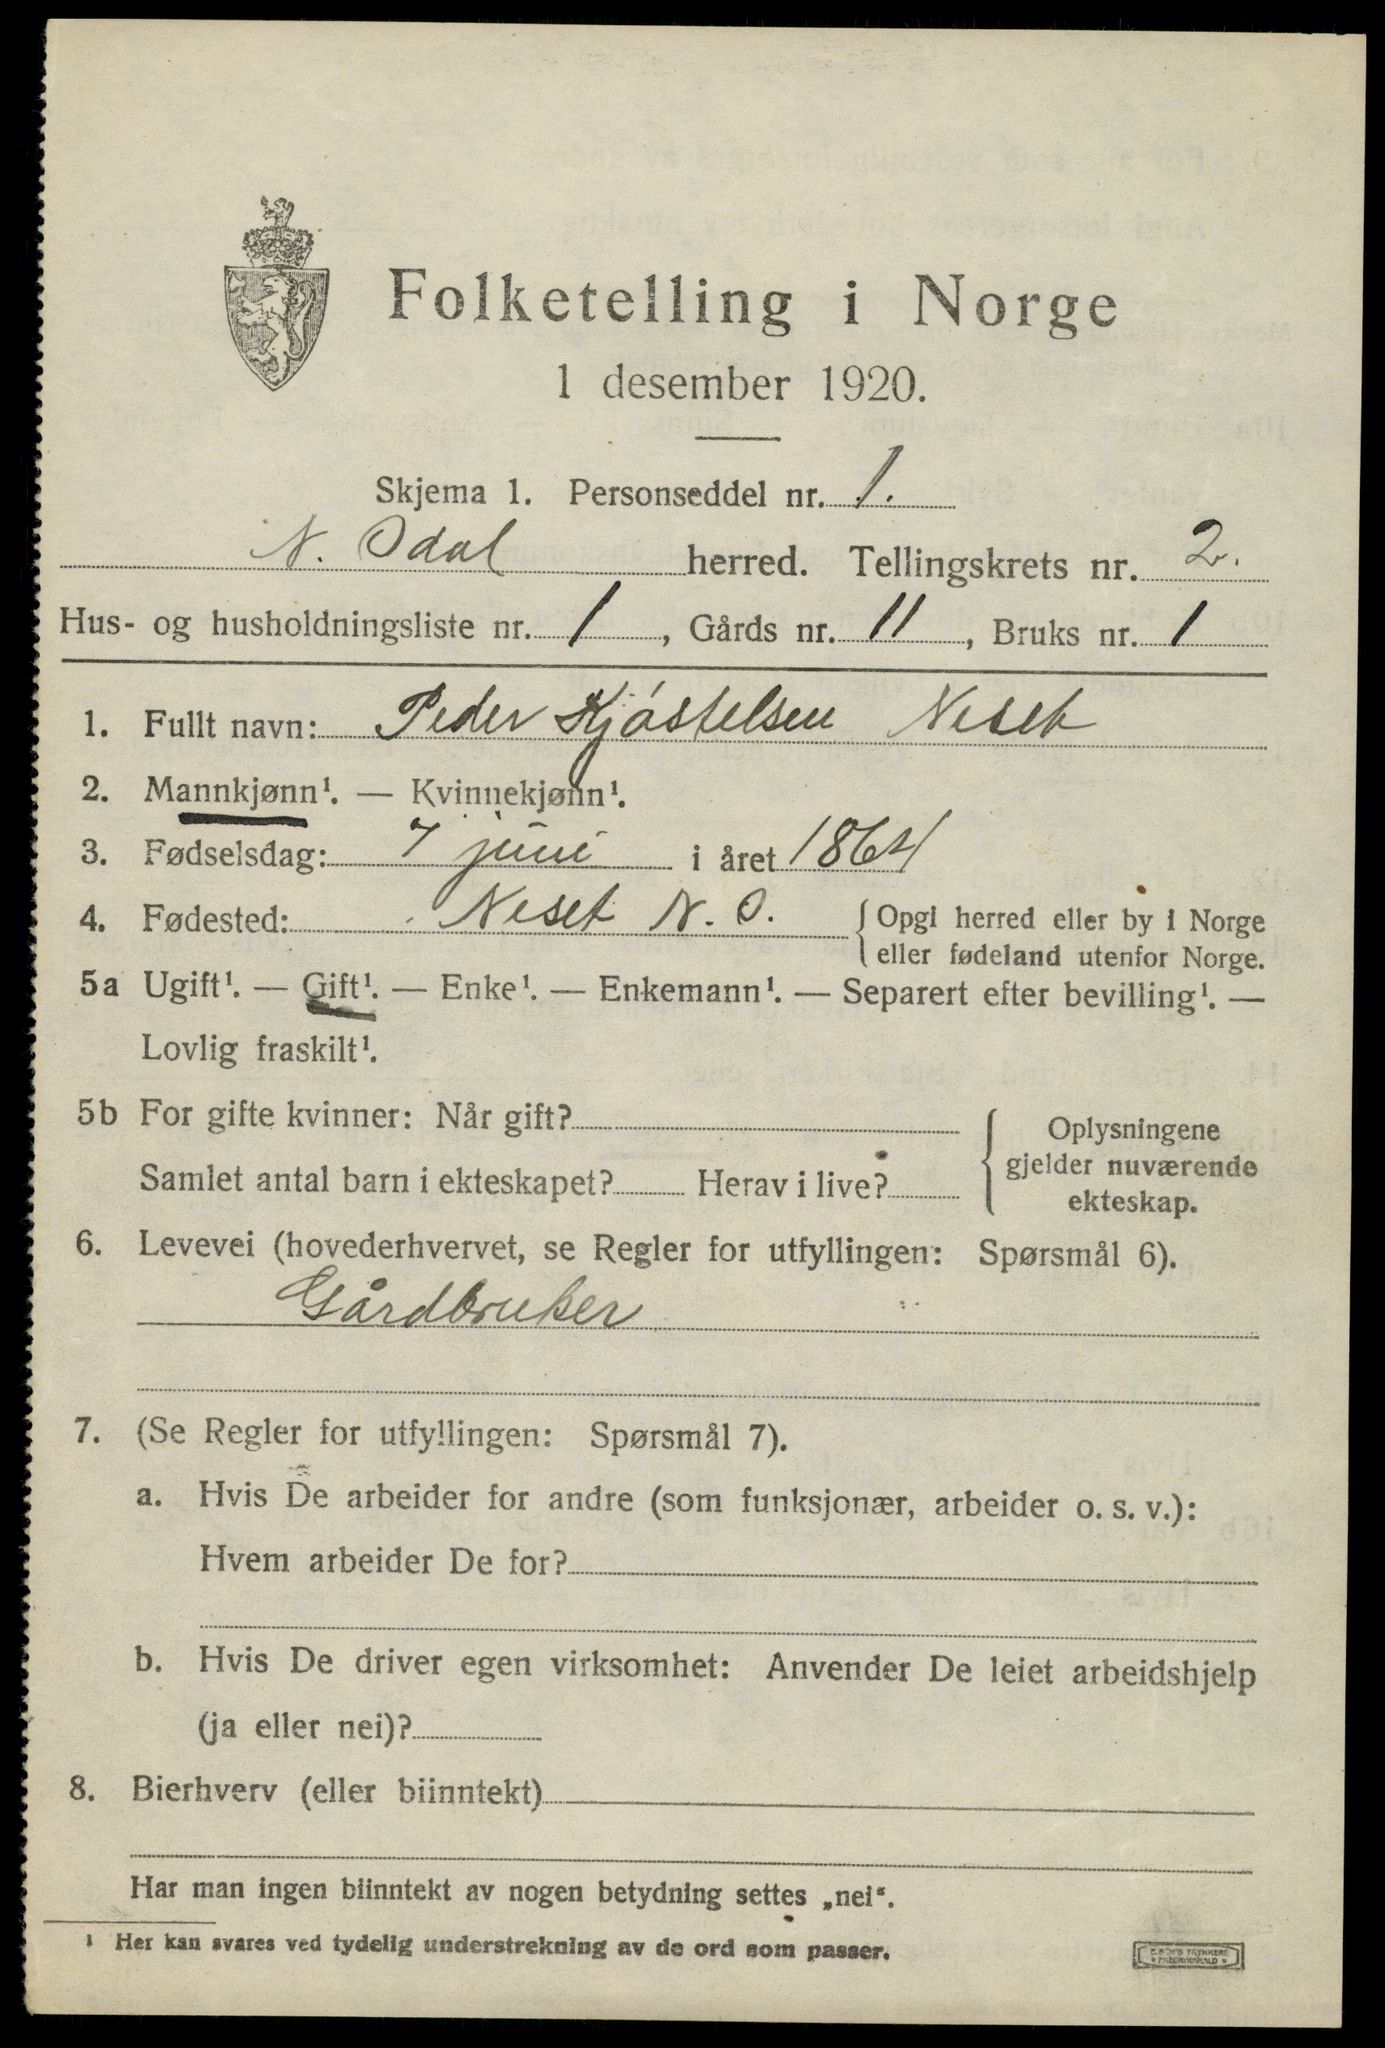 Folketelling i Norge
1 desember 1920.
Skjema 1. Personseddel nr. 1.
N. Odal herred. Tellingskrets nr. 2.
Hus- og husholdningsliste nr. 1, Gårds nr. 11, Bruks nr. 1
1. Fullt navn: Peder Kjóstelsen Neset
2. Mannkjønn¹. — Kvinnekjønn¹.
3. Fødselsdag: 7 juni i året 1864
4. Fødested: Neset N. O. Opgi herred eller by i Norge
eller fødeland utenfor Norge.
5a Ugift¹. — Gift¹. — Enke¹. — Enkemann¹. — Separert efter bevilling¹. —
Lovlig fraskilt¹.
5b For gifte kvinner: Når gift?
Samlet antal barn i ekteskapet? Herav i live?
Oplysningene
gjelder nuværende
ekteskap.
6. Levevei (hovederhvervet, se Regler for utfyllingen: Spørsmål 6).
Gårdbruker
7. (Se Regler for utfyllingen: Spørsmål 7).
a. Hvis De arbeider for andre (som funksjonær, arbeider o. s. v.):
Hvem arbeider De for?
b. Hvis De driver egen virksomhet: Anvender De leiet arbeidshjelp
(ja eller nei)?
8. Bierhverv (eller biinntekt)
Har man ingen biinntekt av nogen betydning settes „nei“.
¹ Her kan svares ved tydelig understrekning av de ord som passer.